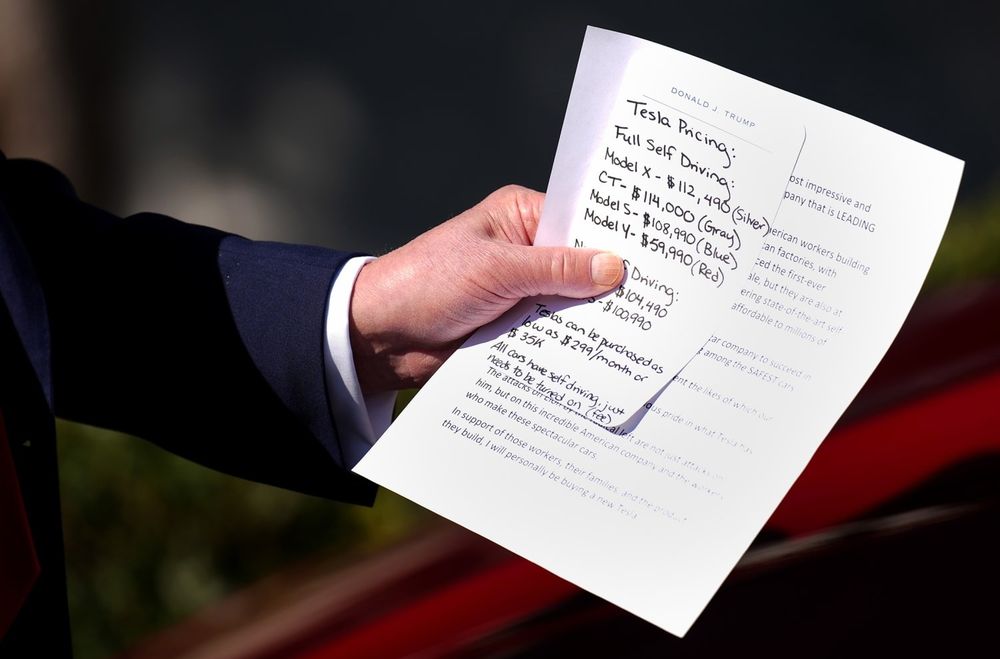 DONALD J. TRUMP
Tesla Pricing:
Full Self Driving:
Model X - $112,490 (Silver)
CT - $114,000 (Gray)
Model S - $108,990 (Blue)
Model Y - $59,990 (Red)
Driving:
$104,490
- $100,990
Teslas can be purchased as
low as $299/month or
$35K
All cars have self driving, just
needs to be turned on (fee)
ost impressive and
pany that is LEADING
erican workers building
can factories, with
ced the first-ever
ale, but they are also at
ering state-of-the-art self
affordable to millions of
ar company to succeed in
among the SAFEST cars
ent the likes of which our
ous pride in what Tesla has
The attacks on left are not just attacks on
him, but on this incredible American company and the workers
who make these spectacular cars.
In support of those workers, their families, and the product
they build, I will personally be buying a new Tesla